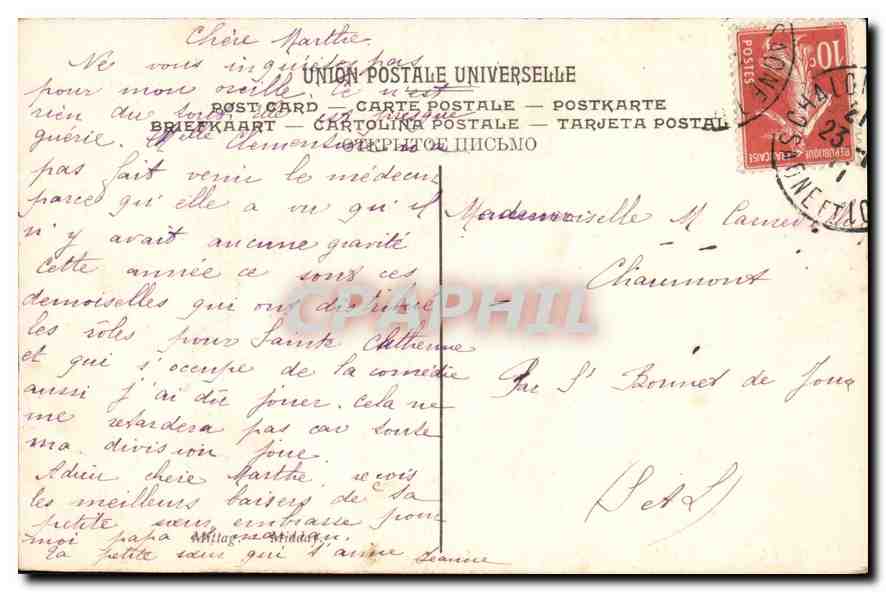 Chère Marthe.
Ne vous inquiétez pas
pour mon oreille. Ce n'est
rien du tout, elle est presque
guérie. Melle Clemontine n'a
pas fait venir le médecin
parce qu'elle a vu qu'il
n'y avait aucune gravité
Cette année ce sont ces
demoiselles qui ont distribué
les rôles pour Sainte Catherine
et qui s'occupe de la comédie
aussi j'ai dû jouer. Cela ne
me retardera pas car toute
ma division joue
Adieu chère Marthe reçois
les meilleurs baisers de ta
petite sœur, embrasse pour
moi papa et maman.
Ta petite sœur qui t'aime
Jeanne
UNION POSTALE UNIVERSELLE
POST CARD — CARTE POSTALE — POSTKARTE
BRIEFKAART — CARTOLINA POSTALE — TARJETA POSTAL
ОТКРЫТОЕ ПИСЬМО
Mademoiselle M.
Chaumont
Par St Bonnet de Joux
(S et L)
10c
POSTES
REPUBLIQUE FRANCAISE
CHALON
SAONE ET LO
23
CPAPHIL
Mittag Midday